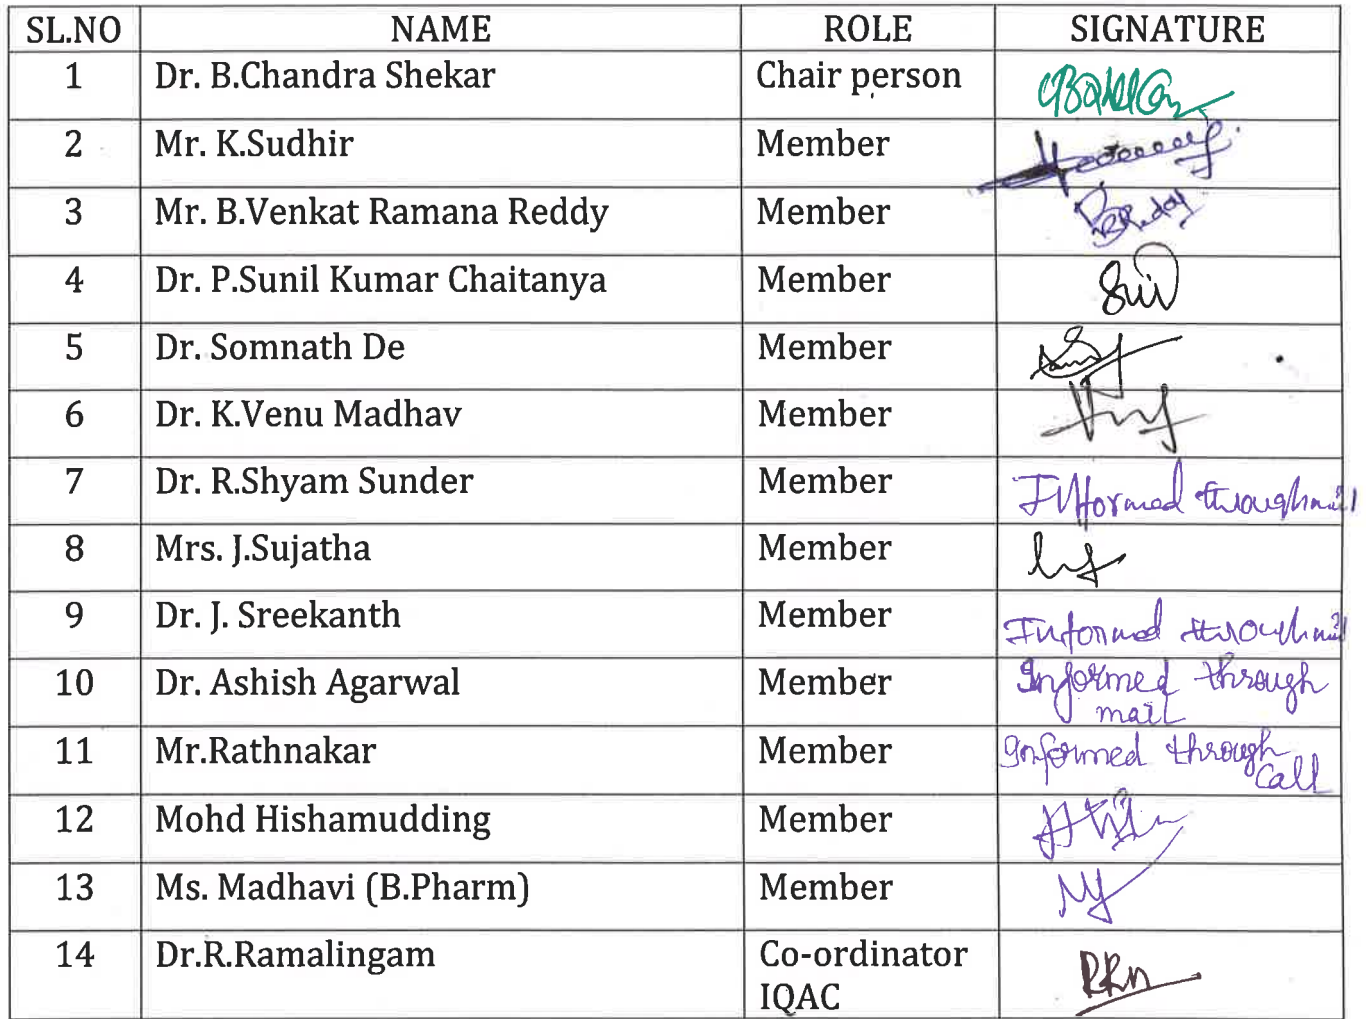 SL.NO NAME ROLE SIGNATURE
1 Dr. B.Chandra Shekar Chair person
2 Mr. K.Sudhir Member
3 Mr. B.Venkat Ramana Reddy Member BReddy
4 Dr. P.Sunil Kumar Chaitanya Member
5 Dr. Somnath De Member
6 Dr. K.Venu Madhav Member
7 Dr. R.Shyam Sunder Member Informed through mail
8 Mrs. J.Sujatha Member
9 Dr. J. Sreekanth Member Informed through mail
10 Dr. Ashish Agarwal Member Informed through
mail
11 Mr.Rathnakar Member Informed through
call
12 Mohd Hishamudding Member
13 Ms. Madhavi (B.Pharm) Member
14 Dr.R.Ramalingam Co-ordinator
IQAC